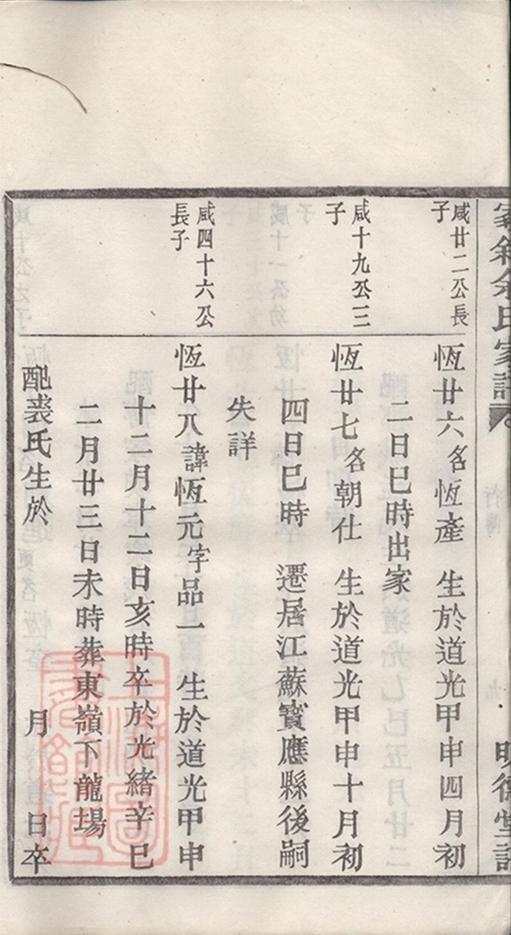 余氏家譜
明德堂
咸廿二公長子
恆廿六名恆產 生於道光甲申四月初
二日巳時出家
咸十九公三子
恆廿七名朝仕 生於道光甲申十月初
四日巳時 遷居江蘇寶應縣後嗣
失詳
咸四十六公長子
恆廿八諱恆元字品一 生於道光甲申
十二月十二日亥時卒於光緒辛巳
二月廿三日未時葬東嶺下龍場
配裘氏生於 月 日卒